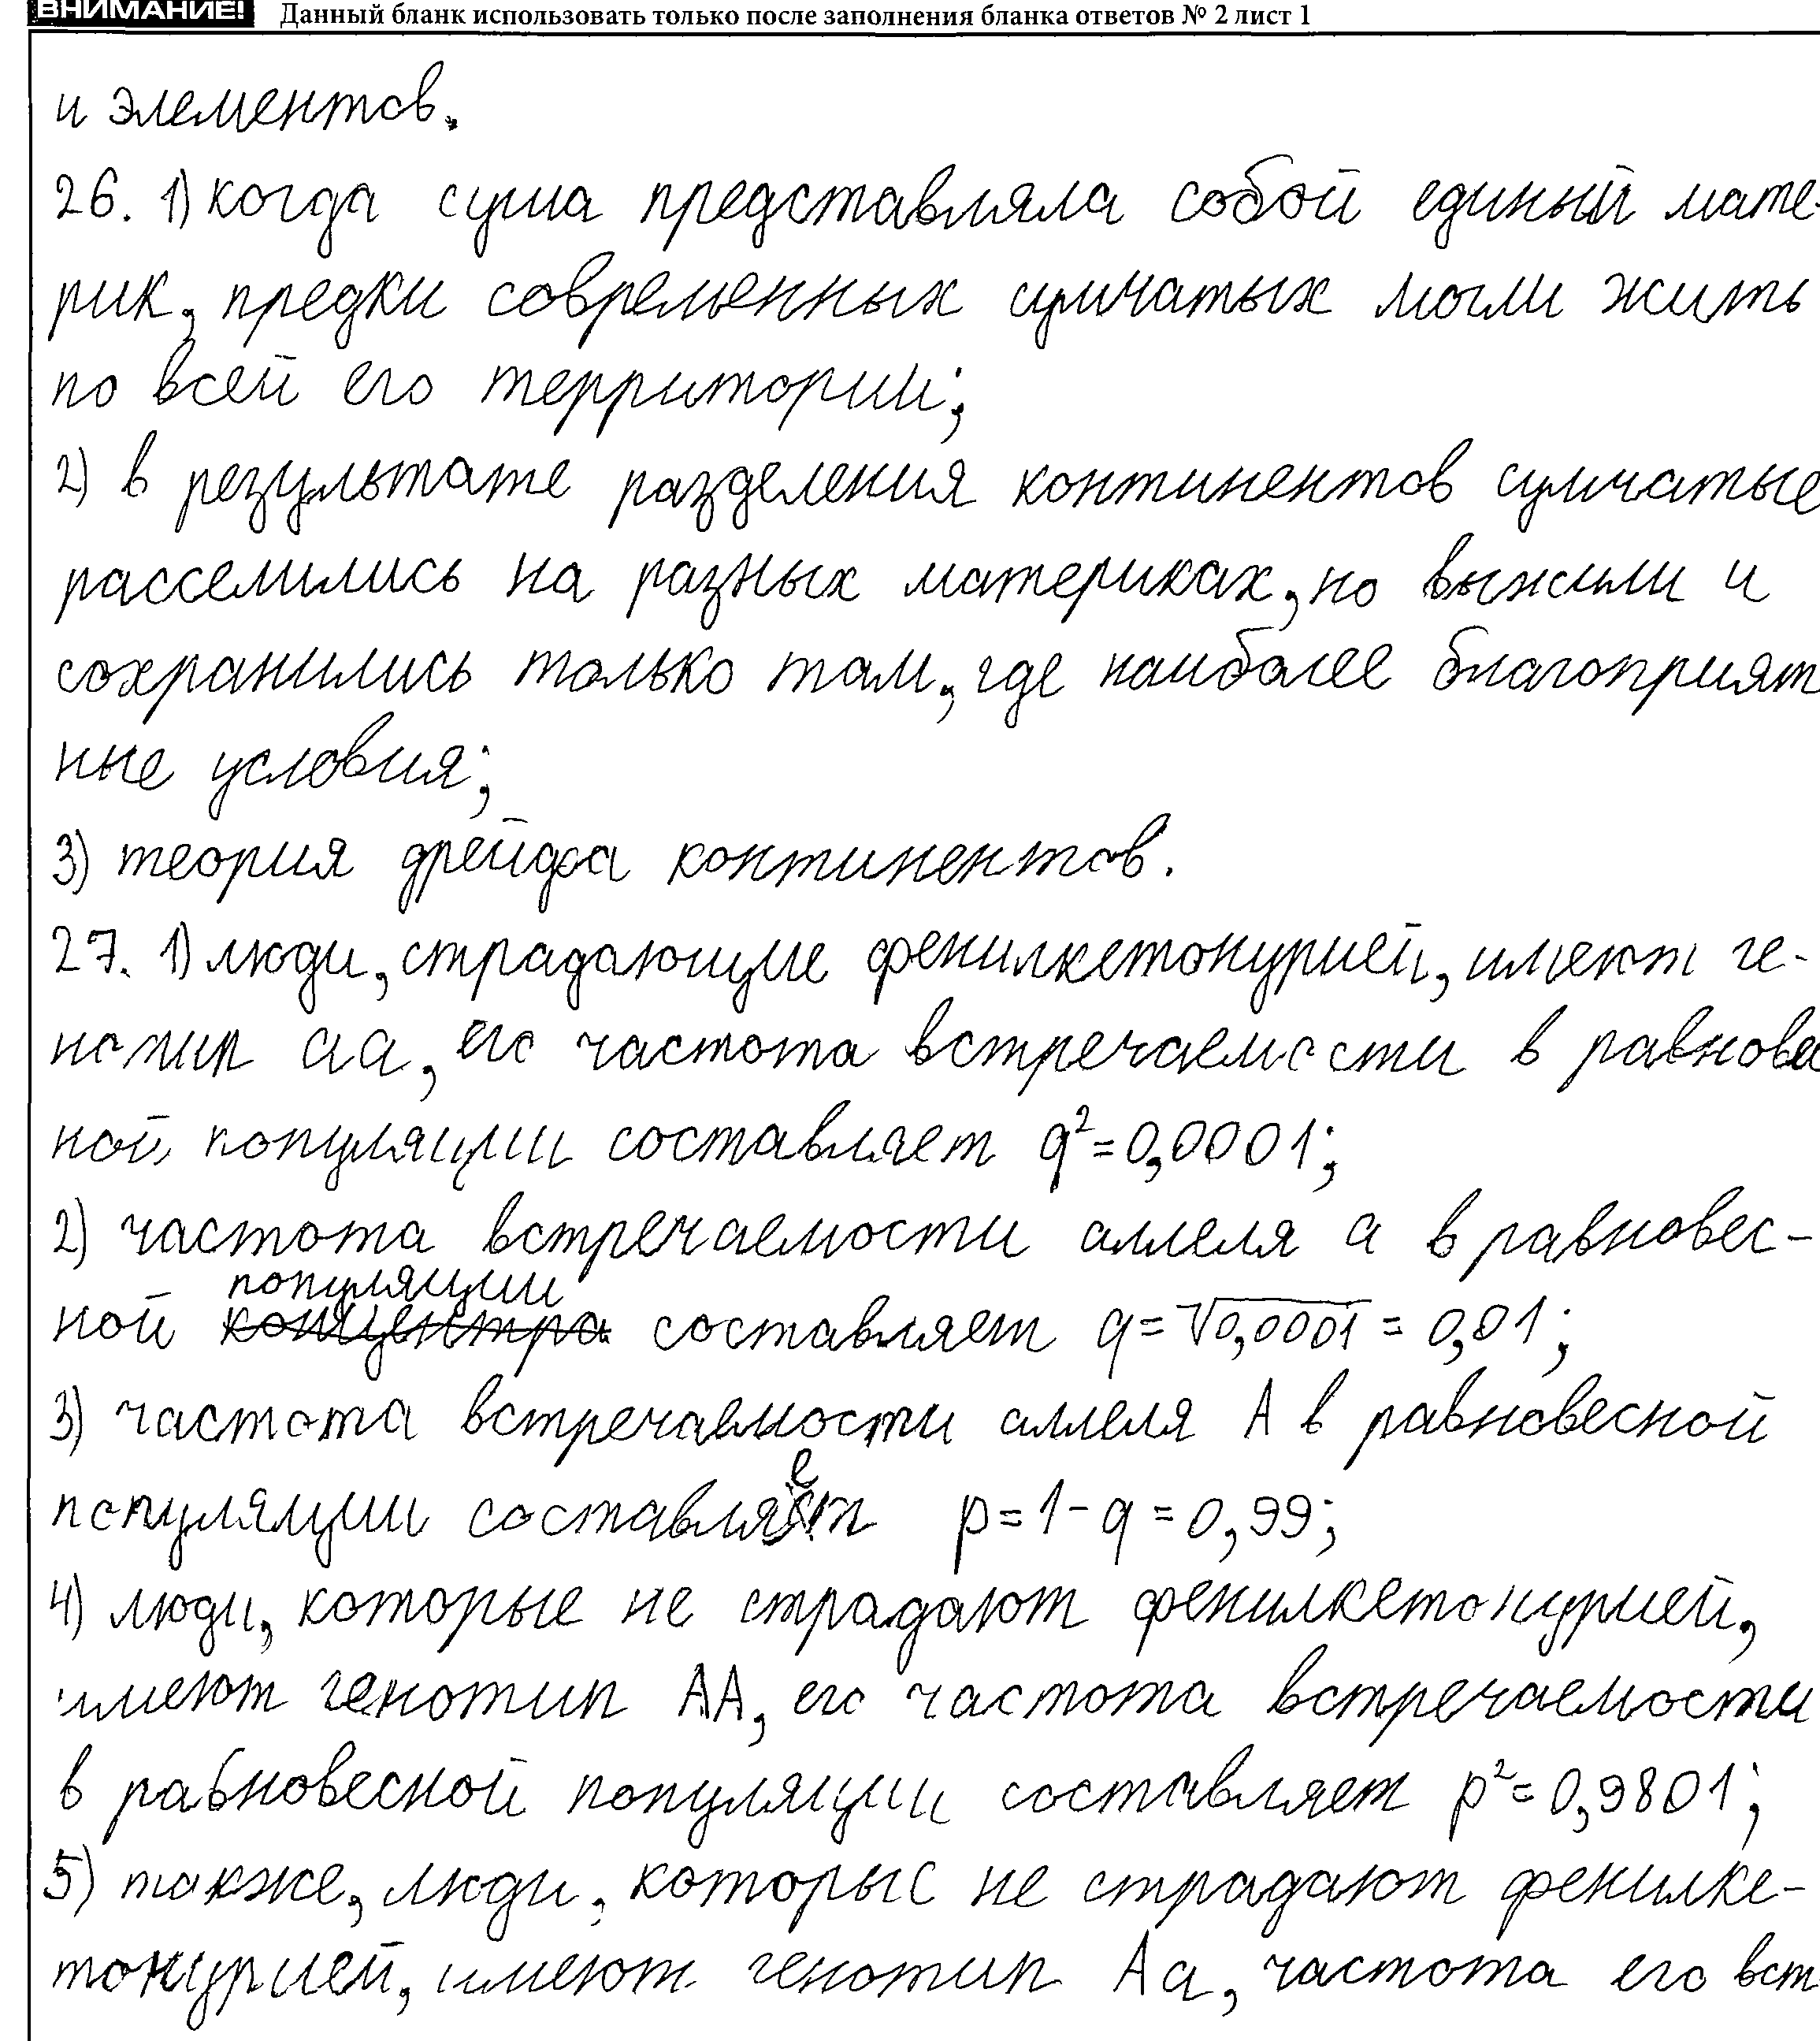 ВНИМАНИЕ! Данный бланк использовать только после заполнения бланка ответов № 2 лист 1
и элементов.
26. 1) когда суша представляла собой единый мате-
рик, предки современных сумчатых могли жить
по всей его территории;
2) в результате разделения континентов сумчатые
расселились на разных материках, но выжили и
сохранились только там, где наиболее благоприят
ные условия;
3) теория дрейфа континентов.
27. 1) люди, страдающие фенилкетонурией, имеют ге-
нотип аа, его частота встречаемости в равнове
ной популяции составляет q²=0,0001;
2) частота встречаемости аллеля а в равновес-
популяции
ной концентра составляет q=√0,0001 = 0,01;
3) частота встречаемости аллеля А в равновесной
популяции составляет p=1-q=0,99;
4) люди, которые не страдают фенилкетонурией,
имеют генотип АА, его частота встречаемости
в равновесной популяции составляет p²=0,9801;
5) также, люди, которые не страдают фенилке-
тонурией, имеют генотип Аа, частота его вст